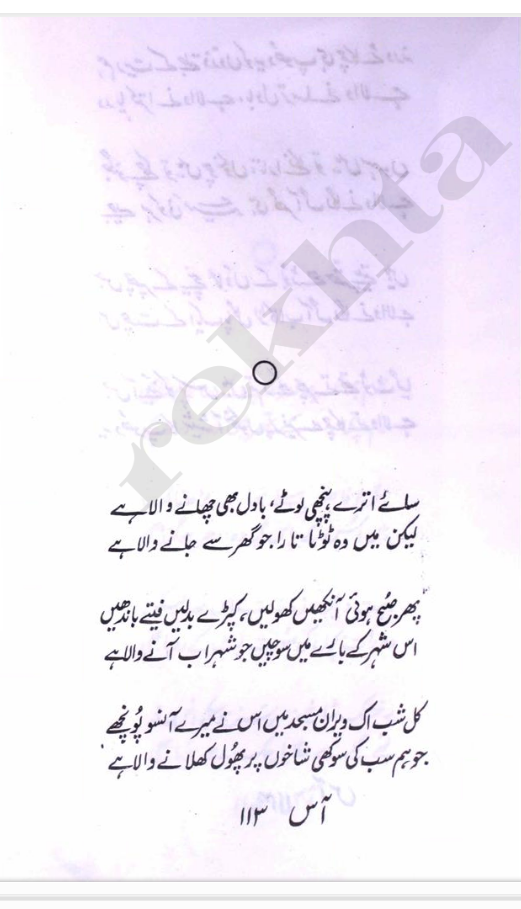 rekhta
سائے اترے پنچھی لوٹے، بادل بھی چھانے والا ہے
لیکن میں وہ ٹوٹا تارا جو گھر سے جانے والا ہے
پھر صبح ہوئی آنکھیں کھولیں، کپڑے بدلیں فیتے باندھیں
اس شہر کے بارے میں سوچیں جو شہر اب آنے والا ہے
کل شب اک ویران مسجد میں اس نے میرے آنسو پونچھے
جو ہم سب کی سوکھی شاخوں پر پھول کھلانے والا ہے
آس ۱۱۳